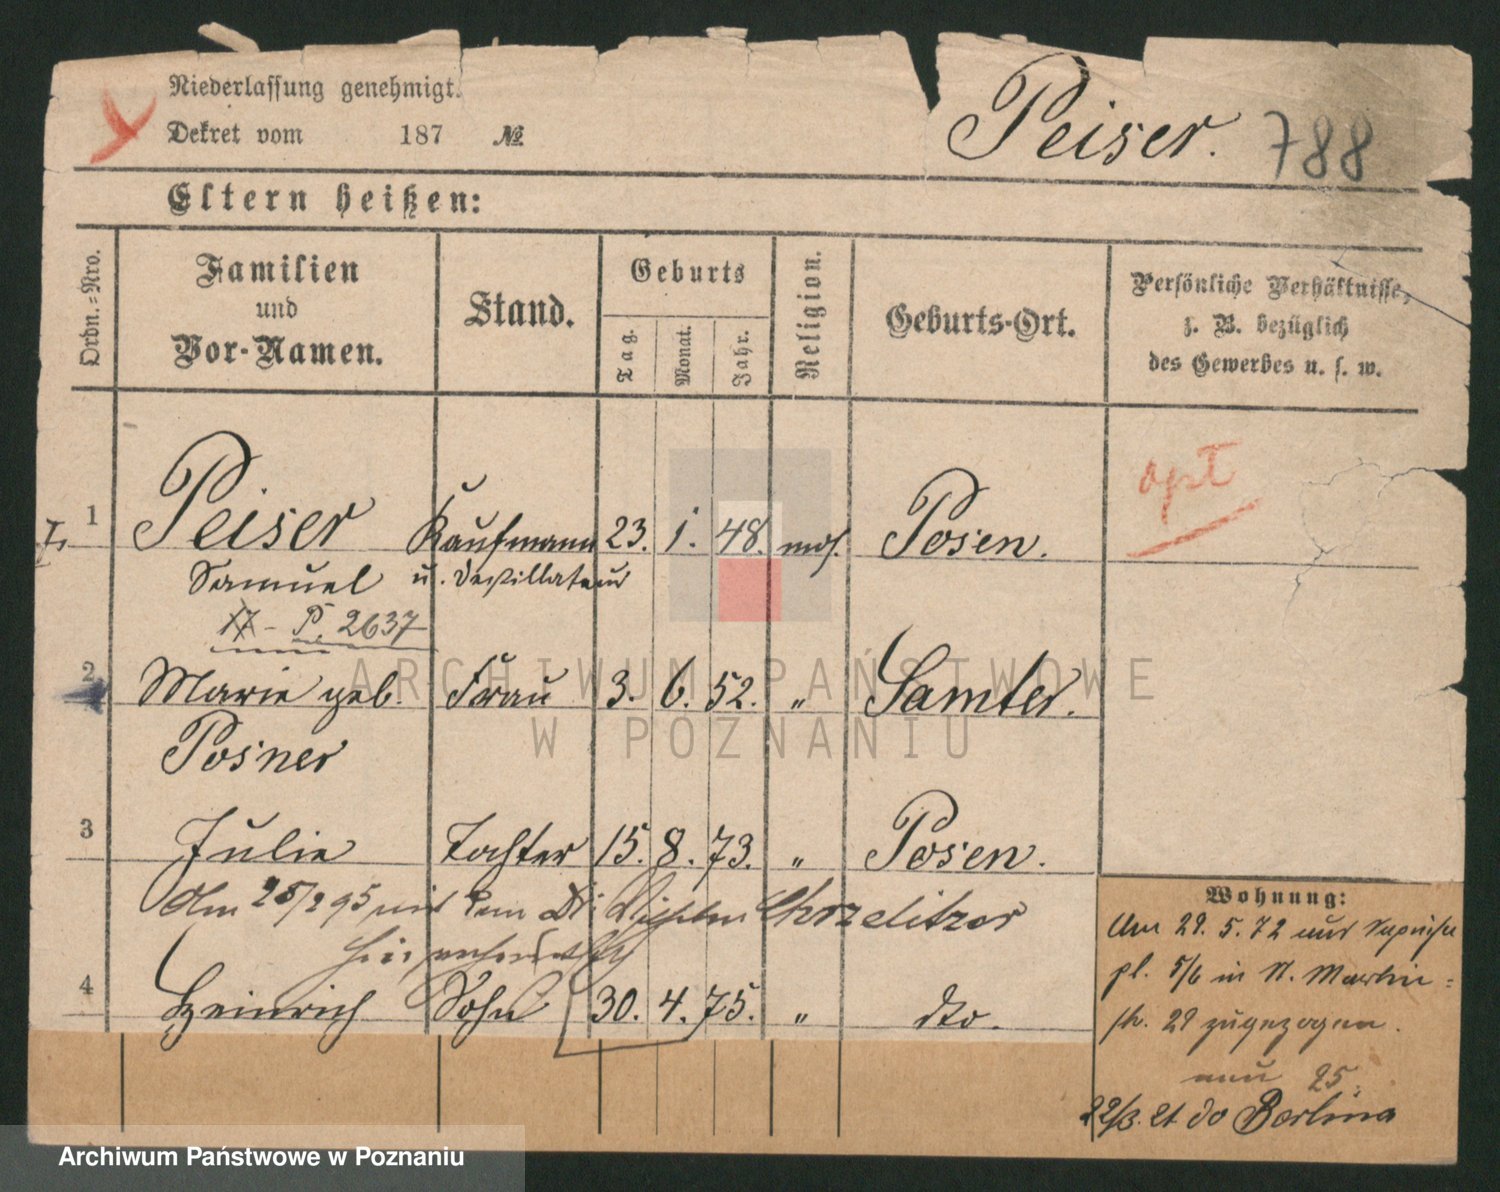 Niederlassung genehmigt.
Dekret vom 187 №
Peiser. 788
Eltern heißen:
Ordn.=Nro.
Familien
und
Vor-Namen.
Stand.
Geburts
Tag.
Monat.
Jahr.
Religion.
Geburts-Ort.
Persönliche Verhältnisse,
z. B. bezüglich
des Gewerbes u. s. w.
opt
1 Peiser Kaufmann 23. 1. 48. mos. Posen.
Samuel u. Destillateur
17 - P. 2637
2 Marie geb. Frau 3. 6. 52. " Samter.
Posner
3 Julie Tochter 15. 8. 73. " Posen.
Am 25/2 95 mit dem Dr. Chrzelitzer
4 Heinrich Sohn 30. 4. 75. " dto.
Wohnung:
Am 29. 5. 72 aus
pl. 5/6 in St. Martin=
str. 29 zugezogen.
neu 25.
22/3. 21 do Berlina
ARCHIWUM PAŃSTWOWE
W POZNANIU
Archiwum Państwowe w Poznaniu